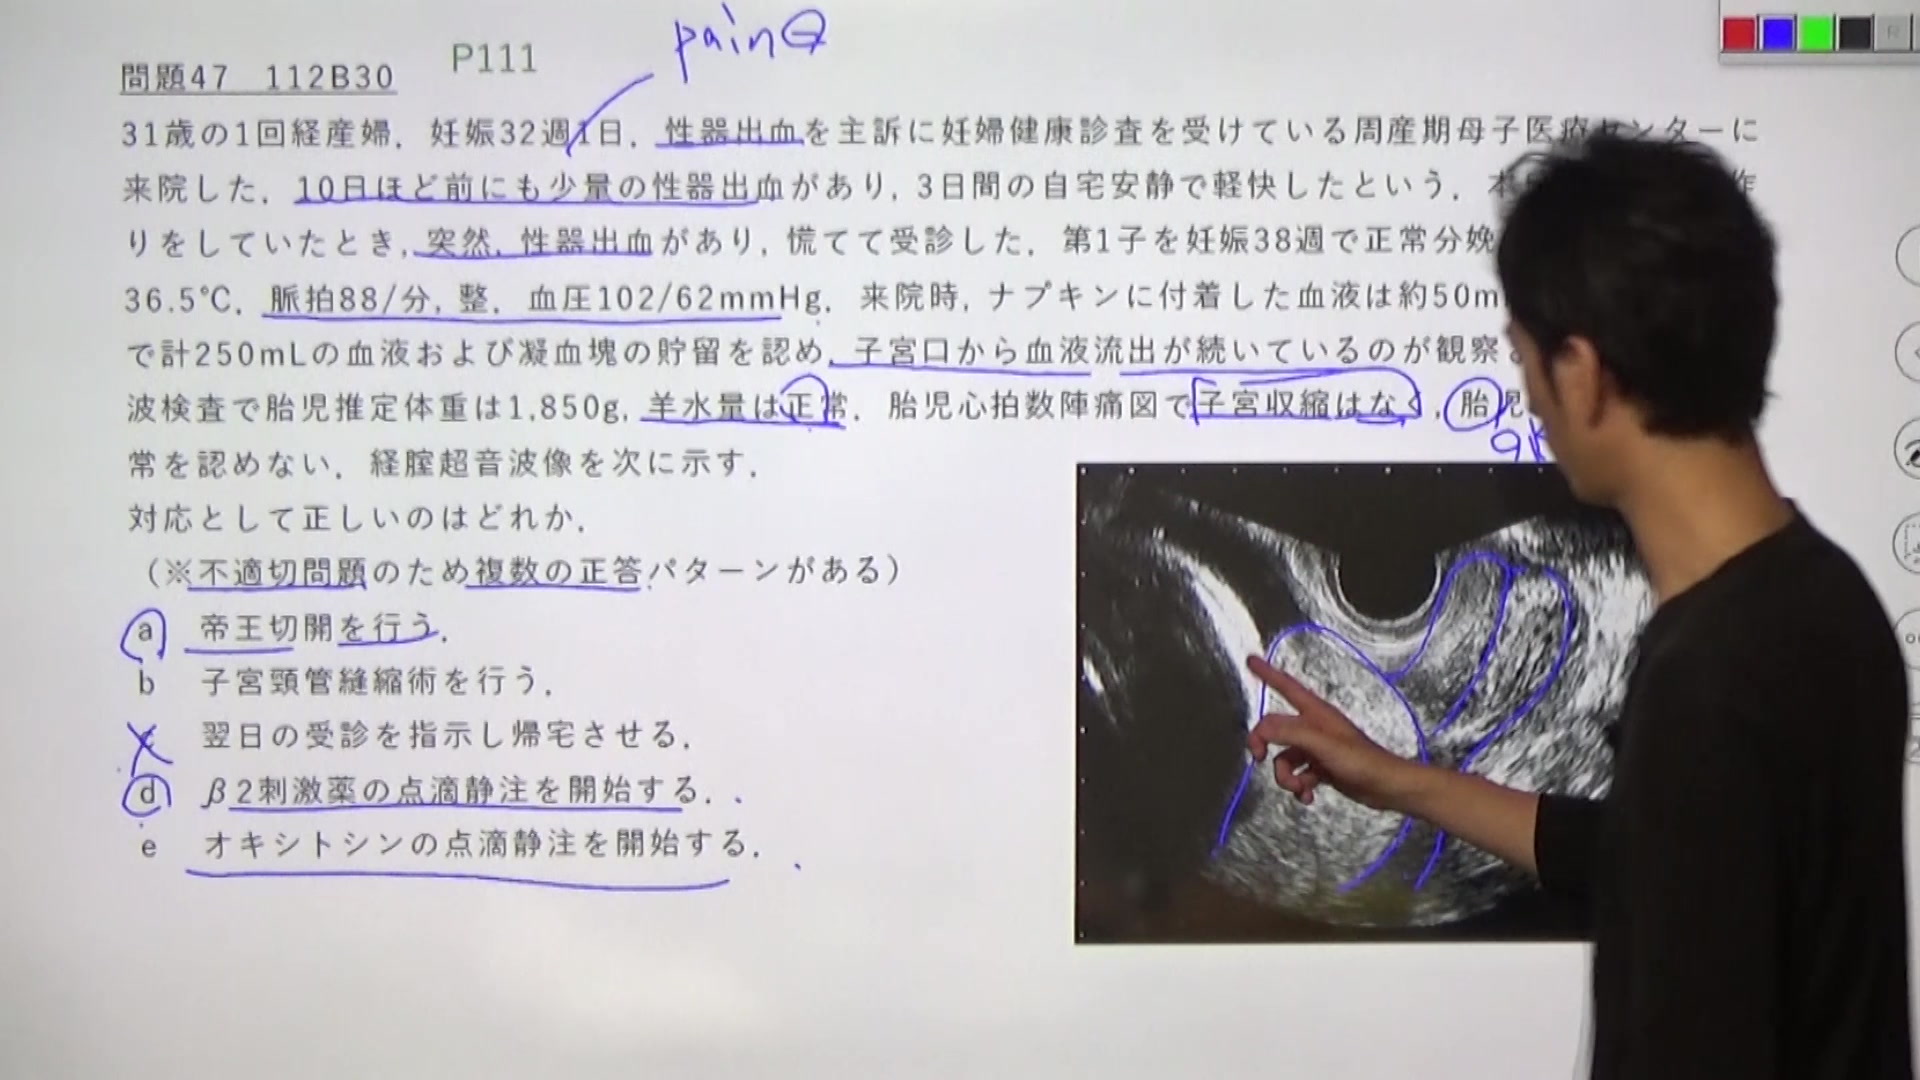 painΘ
P111
問題47 112B30
31歳の1回経産婦．妊娠32週1日．性器出血を主訴に妊婦健康診査を受けている周産期母子医療センターに
来院した．10日ほど前にも少量の性器出血があり，3日間の自宅安静で軽快したという．本
りをしていたとき，突然，性器出血があり，慌てて受診した．第1子を妊娠38週で正常分娩
36.5℃．脈拍88/分，整．血圧102/62mmHg．来院時，ナプキンに付着した血液は約50m
で計250mLの血液および凝血塊の貯留を認め，子宮口から血液流出が続いているのが観察
波検査で胎児推定体重は1,850g，羊水量は正常．胎児心拍数陣痛図で子宮収縮はなく，胎児
常を認めない．経腟超音波像を次に示す．
対応として正しいのはどれか．
（※不適切問題のため複数の正答パターンがある）
a 帝王切開を行う．
b 子宮頸管縫縮術を行う．
翌日の受診を指示し帰宅させる．
d β2刺激薬の点滴静注を開始する．
e オキシトシンの点滴静注を開始する．